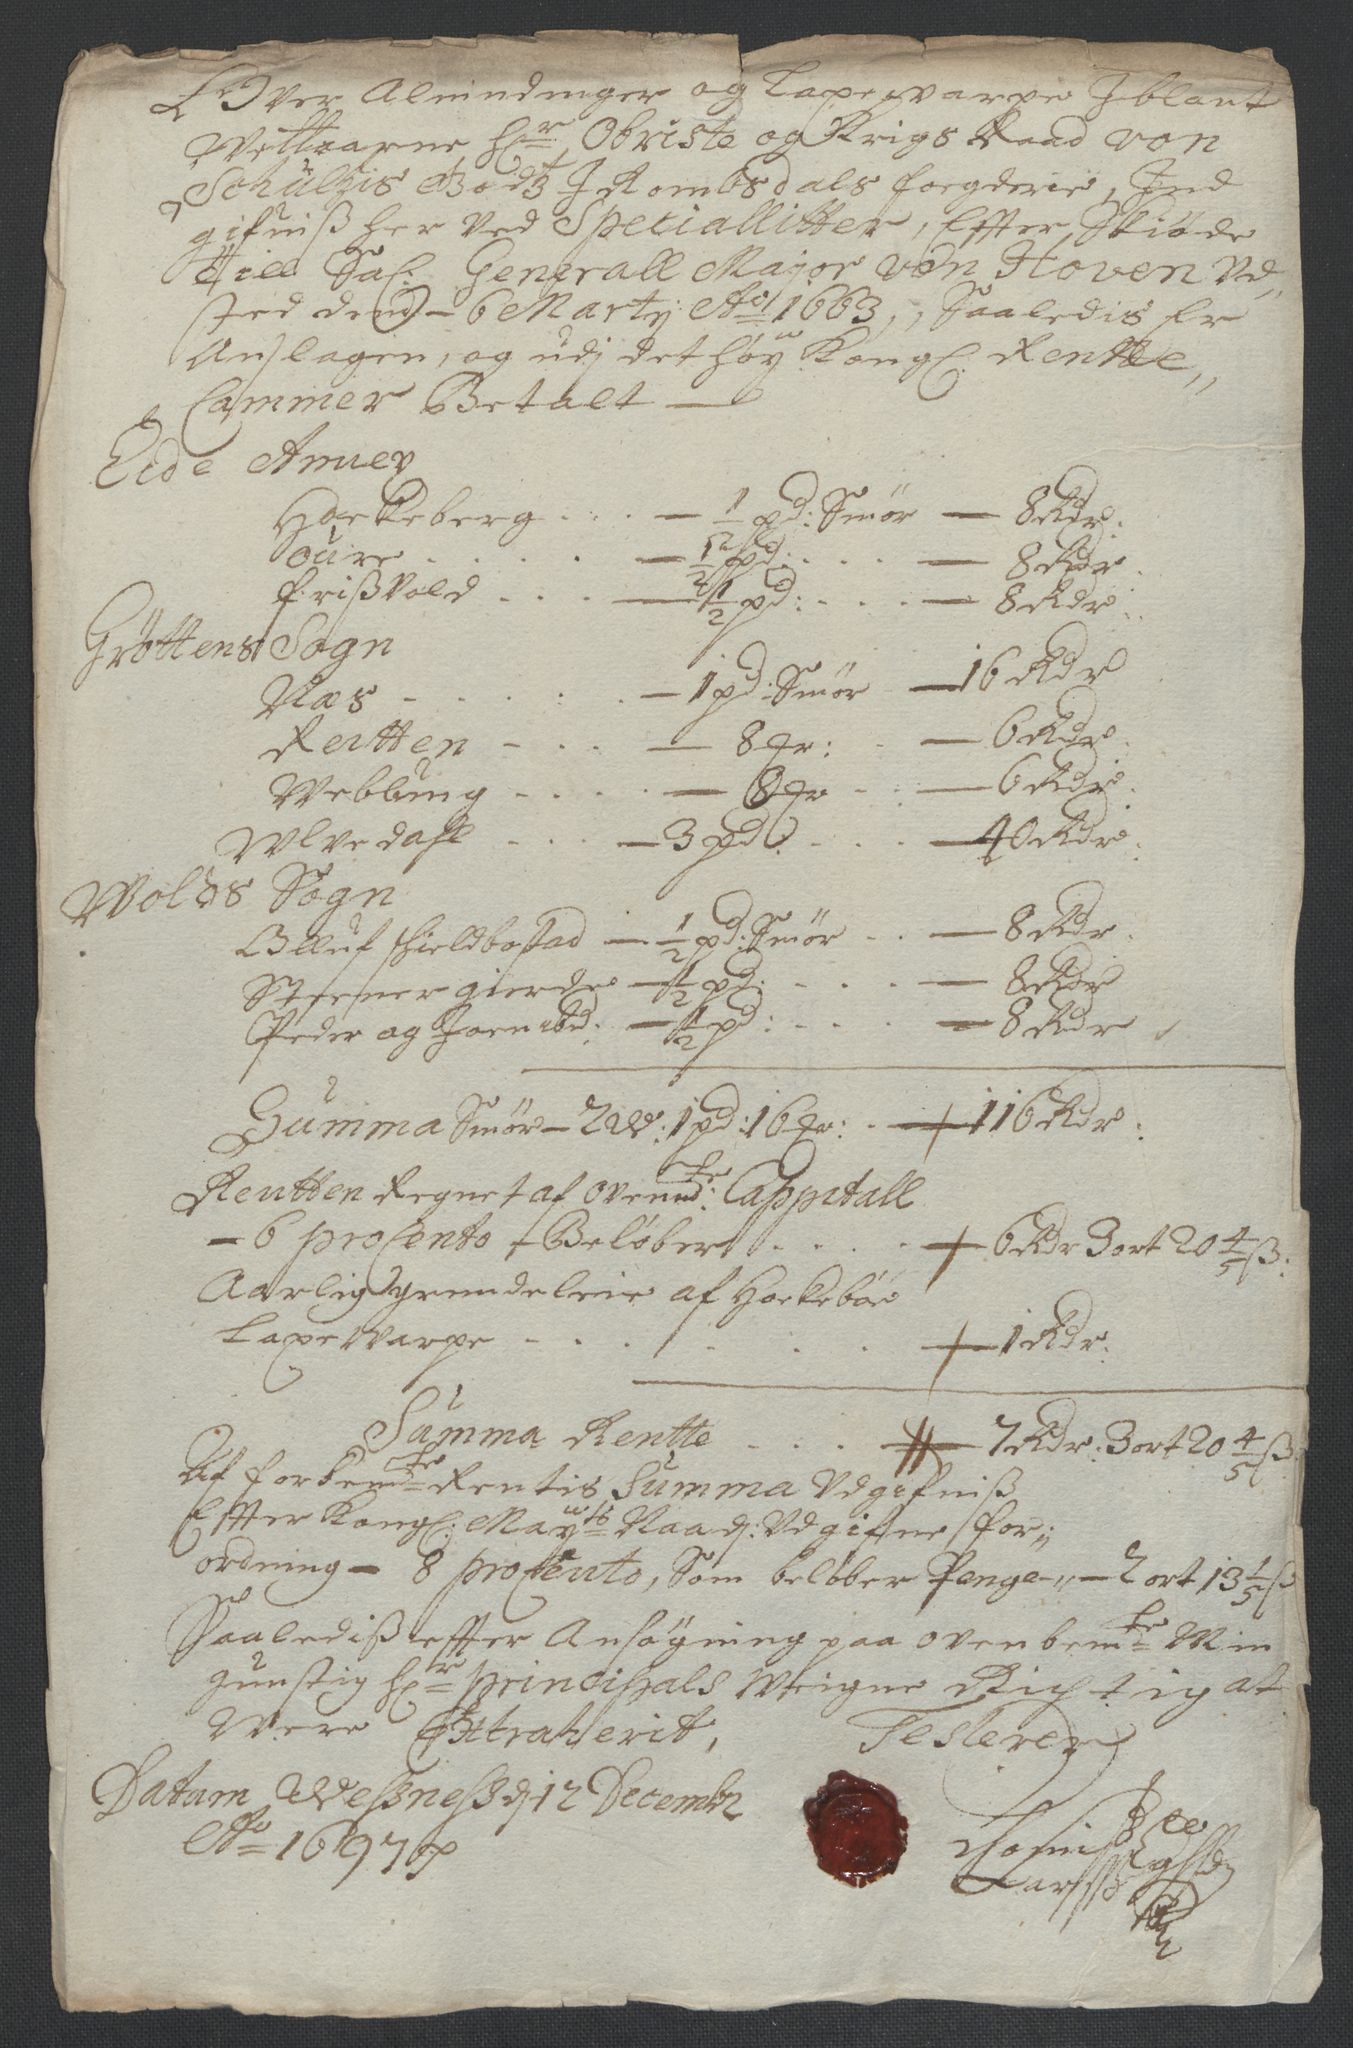 Over Almindinger og Laxe Warpe Iblant
Welb: Herr Obriste og Krigs Raad von
Schultzis Godtz I Rombsdals foegderie, Ind
gifniß her ved Speciallitter, Effter Skiøde
till Sal: Generall Major von Hoven Ud,,
sted dend 6 Martij Ao 1663,, Saaledis er
Anslagen, og udj det høy Kongl: Rentte,,
Cammer Betalt —
Eide Annex
Hoekeberg . . . — 1/2 pd: Smør — 8 Rdr.
Oure . . . . — 1/2 pd: . . . — 8 Rdr.
frißVold . . . — 1/2 pd: . . . — 8 Rdr:
Grøttens Sogn
Næs . . . . . — 1 pd: Smør — 16 Rdr
Reitten . . . . — 8 Mr: . — 6 Rdr.
Weblung . . . . — 8 Mr . . — 6 Rdr.
Wlvedahl . . . — 3 pd: . . . — 40 Rdr:
Wolds Sogn
Olluf Schieldbostad — 1/2 pd: Smør . . — 8 Rdr.
Steenergierde — 1/2 pd: . . . — 8 Rdr
Peder og Joen ibd: — 1/2 pd: . . . — 8 Rdr
Summa Smør — 2 W: 1 pd: 16 Mr: . — 116 Rdr:
Rentten Regnet af ovenmd: Cappitall
— 6 procento — Beløber . . . . — 6 Rdr 3 ort 20 4/5 ß:
Aarlig grundeleie af Hoekebøe
Laxe Warpe . . . . . . — 1 Rdr:
Summa Rentte . . . — 7 Rdr: 3 ort 20 4/5 ß
Af forbemte Rentis Summa Udgifniß
Effter Kongl: Mayts Naad: Udgifne for,,
ordning — 8 procento, Som beløber Penge,, — 2 ort 13 1/5 ß
Saalediß effter Ansøgning paa ovenbemte Min
gunstig Hr principals Weigne Rigtig at
Were Extraherit, Testerer
Datum Weßneß dj 12 Decembr
Ao 1697